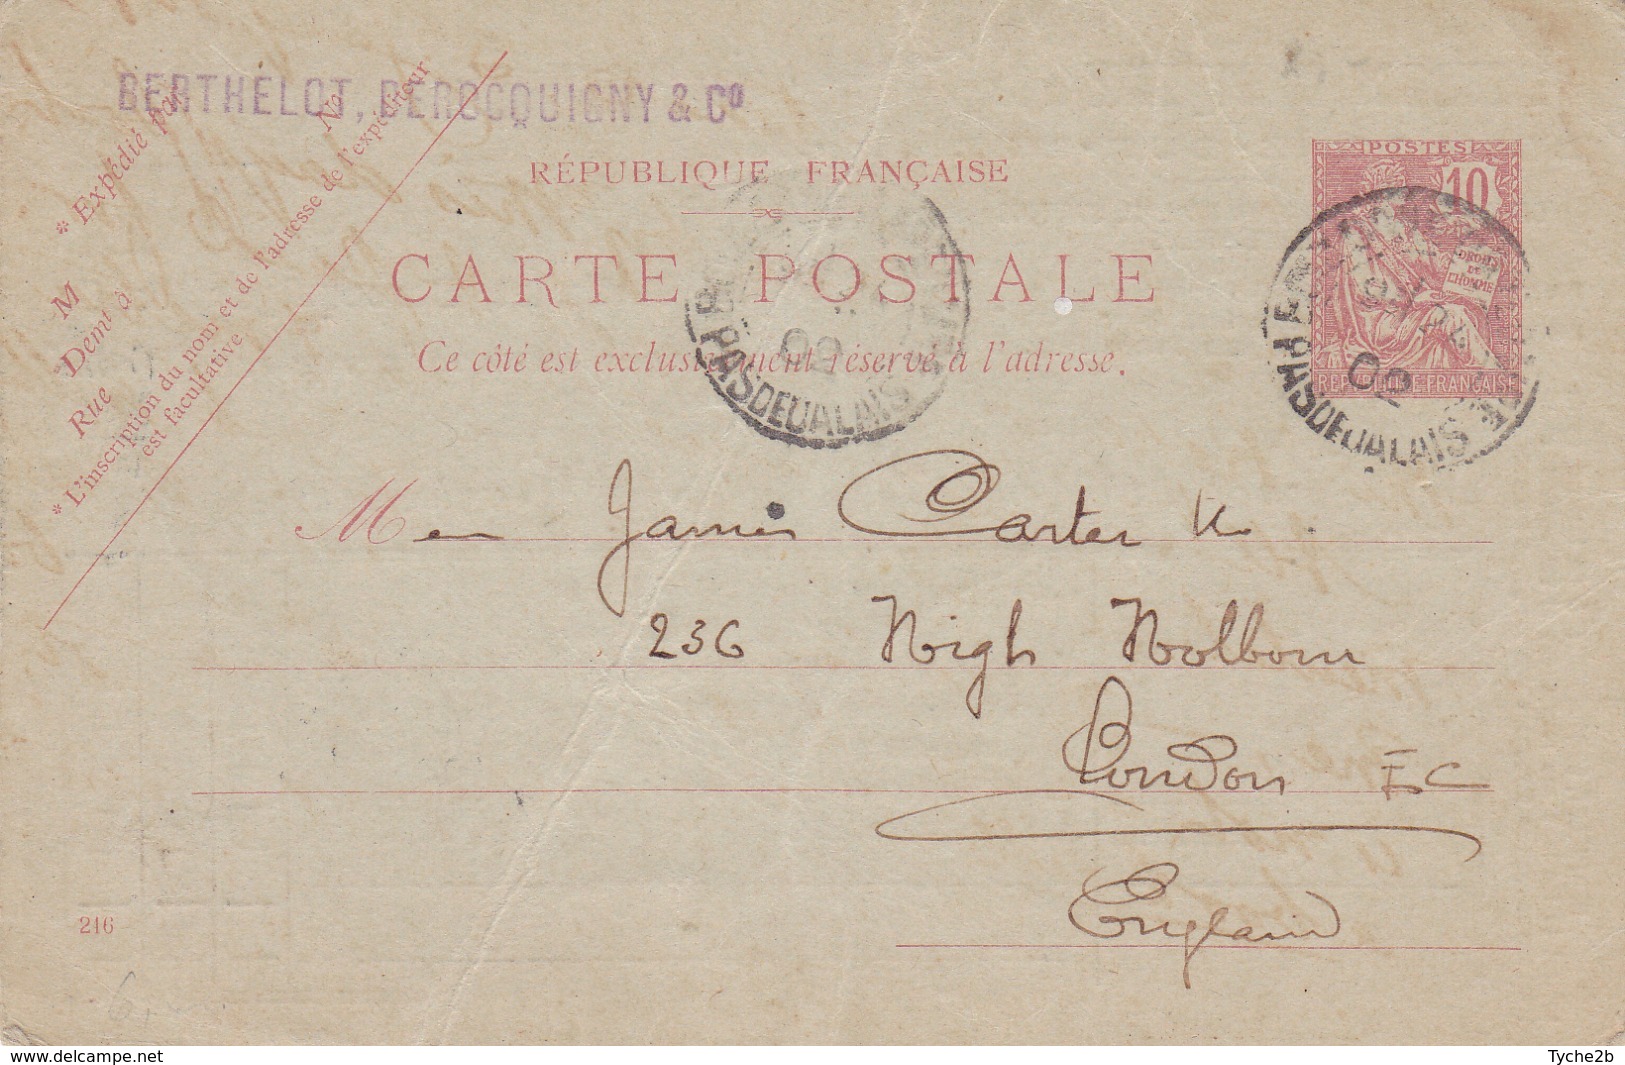 BERTHELOT, DEROCQUIGNY & Cº
* Expédié par
M
Demt à
Rue No
* L'inscription du nom et de l'adresse de l'expéditeur
est facultative
RÉPUBLIQUE FRANÇAISE
CARTE POSTALE
Ce côté est exclusivement réservé à l'adresse.
POSTES
10
DROITS
DE
L'HOMME
RÉPUBLIQUE FRANÇAISE
02
PAS DE CALAIS
02
PAS DE CALAIS
M James Carter
236 High Holborn
London EC
England
216
www.delcampe.net
Tyche2b